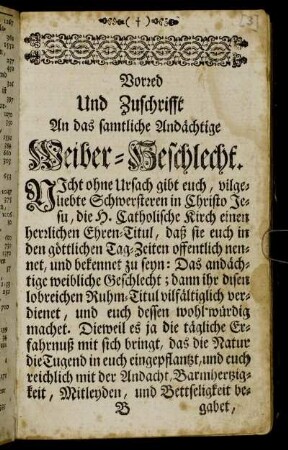 ( † )
[3]
Vorred
Und Zuschrifft
An das samtliche Andächtige
Weiber-Geschlecht.
NIcht ohne Ursach gibt euch, vilge-
liebte Schwersteren in Christo Je-
su, die H. Catholische Kirch einen
herrlichen Ehren-Titul, daß sie euch in
den göttlichen Tag-Zeiten offentlich nen-
net, und bekennet zu seyn: Das andäch-
tige weibliche Geschlecht; dann ihr disen
lobreichen Ruhm-Titul vilfältiglich ver-
dienet, und euch dessen wohl würdig
machet. Dieweil es ja die tägliche Er-
fahrnuß mit sich bringt, das die Natur
die Tugend in euch eingepflantzt, und euch
reichlich mit der Andacht, Barmhertzig-
keit, Mitleyden, und Bettseligkeit be-
B gabet,